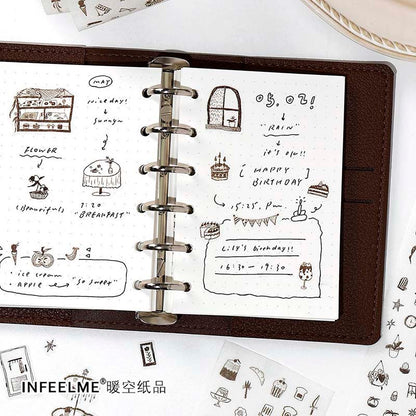 MAY
nice day!
sunny
FLOWER
Beautiful
7:20
"BREAKFAST"
ice cream
APPLE
"so sweet"
05.02!
"RAIN"
it's ok!!
[HAPPY
BIRTHDAY]
15:25. P.m.
Lily's Birthday!!
16:30 - 19:30
INFEELME® 暖空纸品